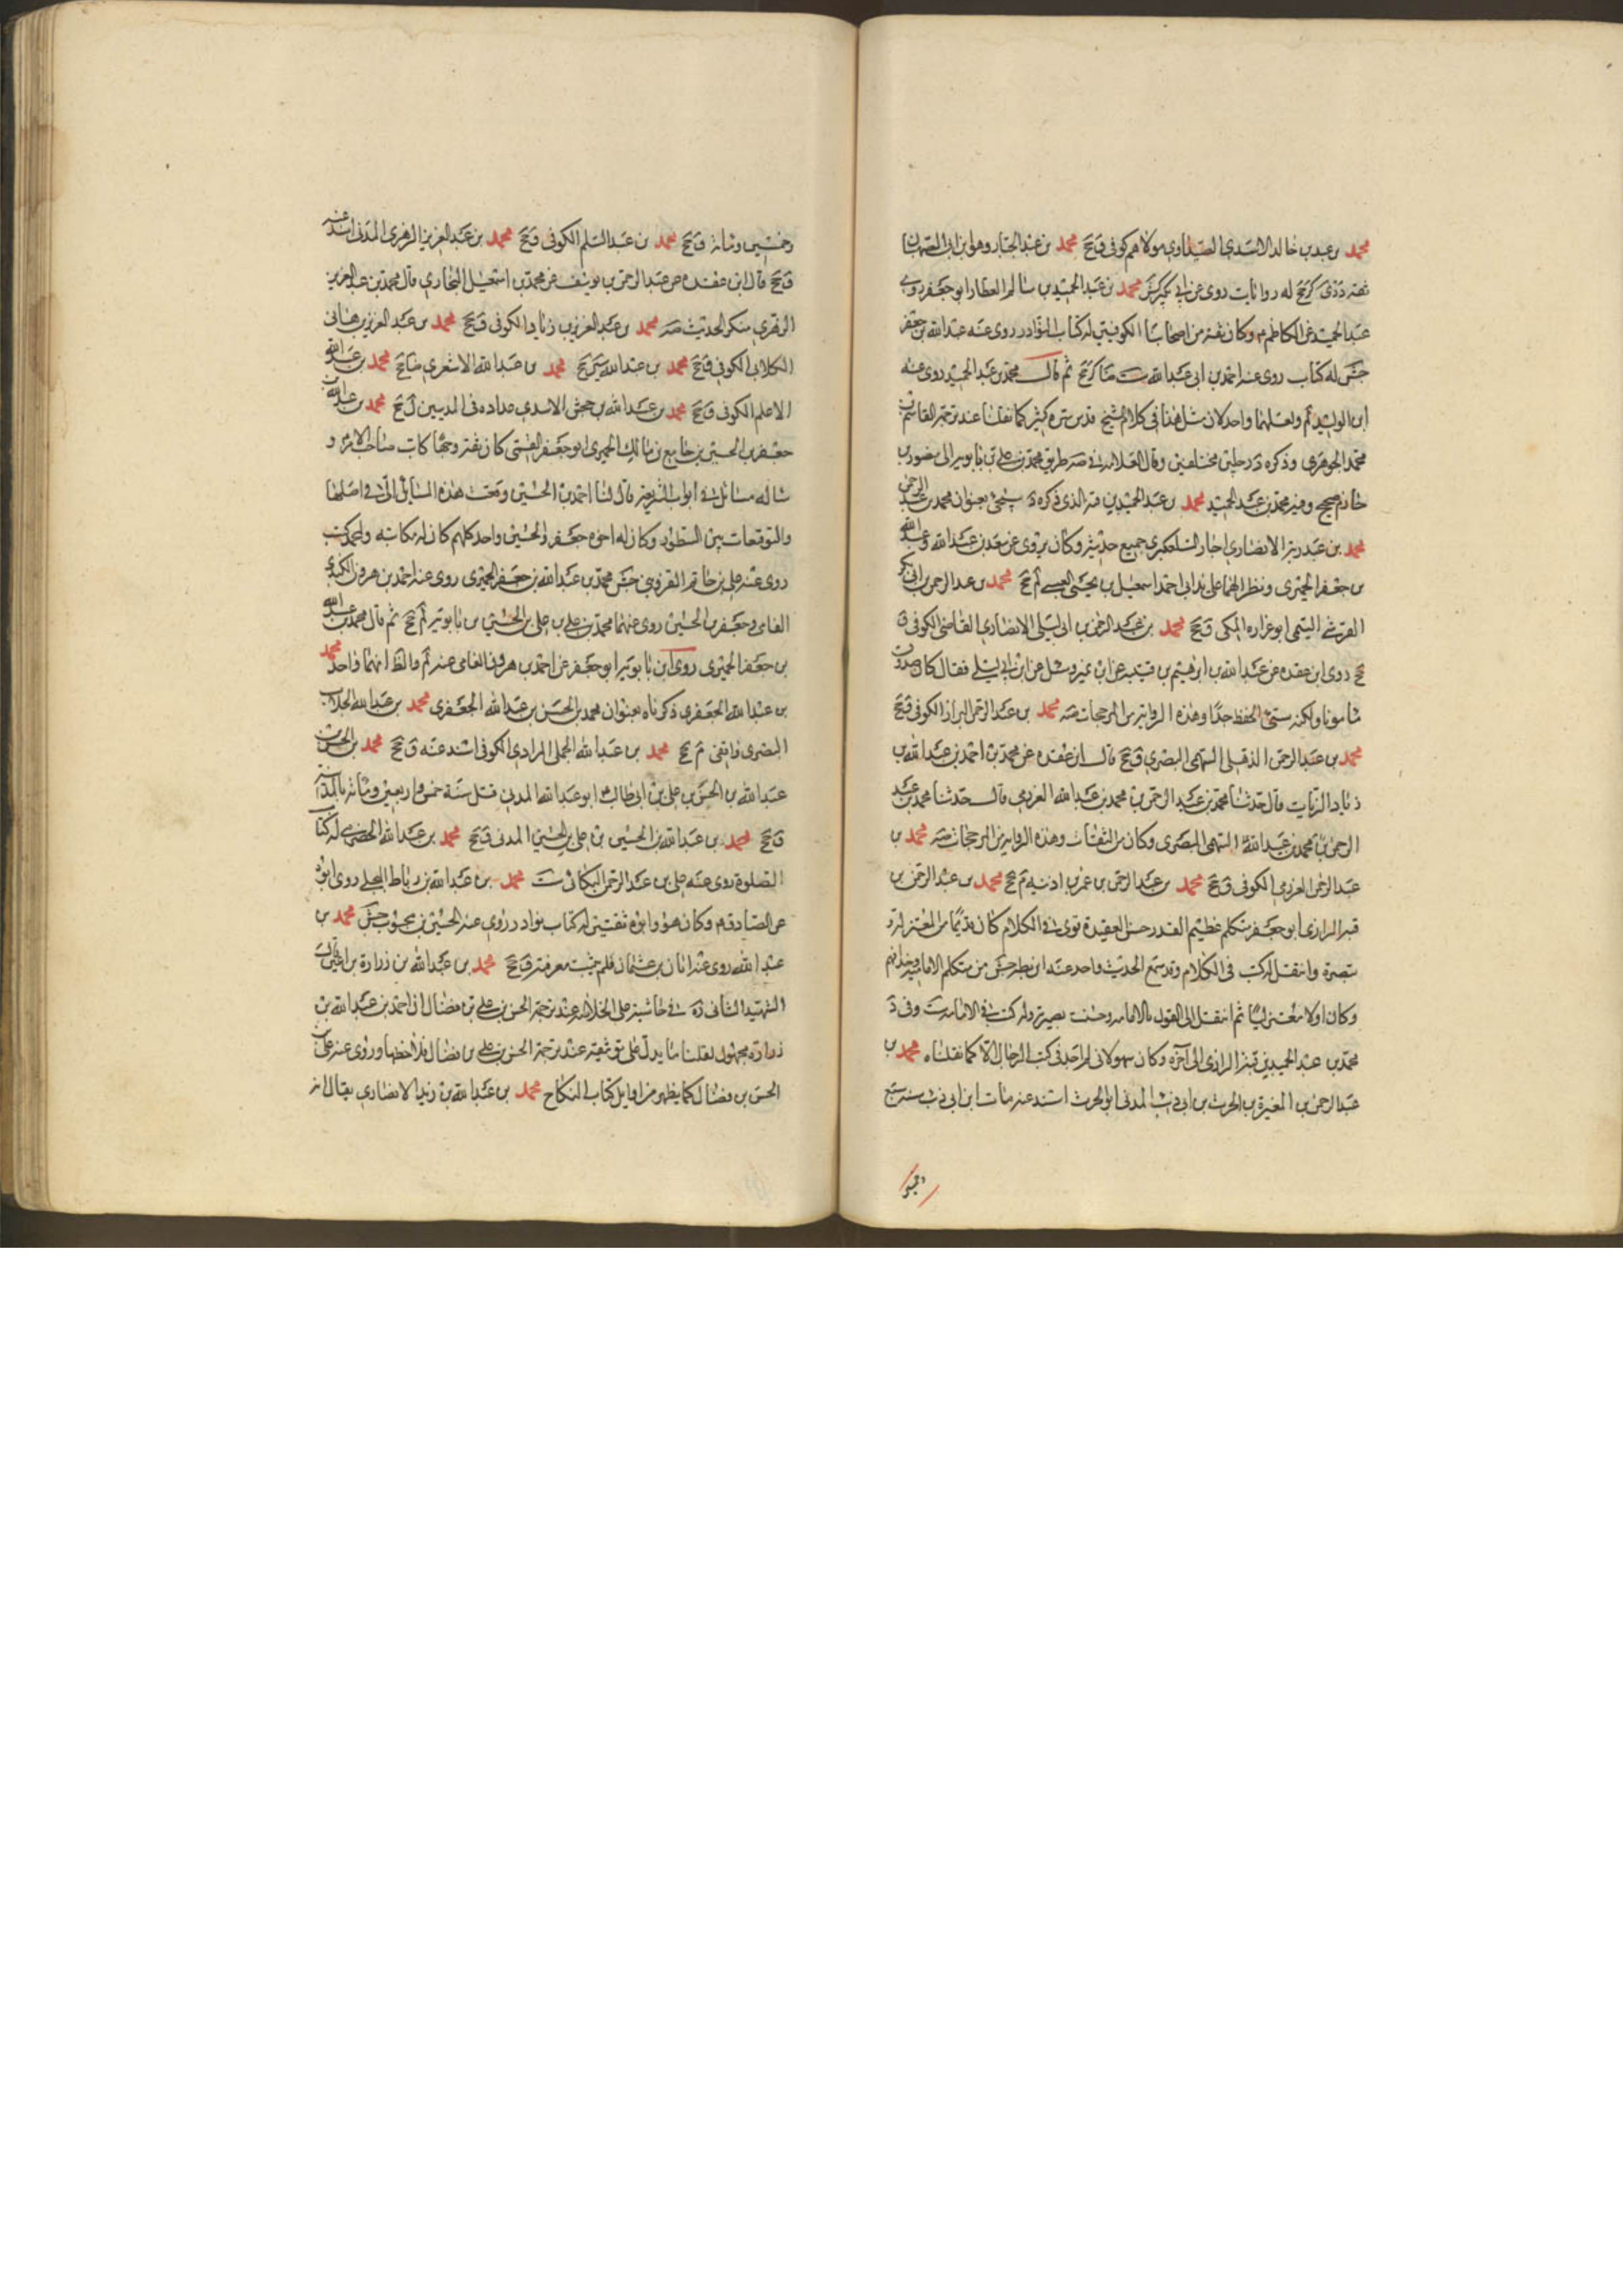 محمد بن عبد بن خالد الاسدي الصيداوي مولاهم كوفي ق جخ محمد بن عبد الجبار وهو ابن ابي الصهبان
ثقة د دي كر جخ له روايات روى عن ابن بكير كش محمد بن عبد الحميد بن سالم العطار ابو جعفر روى
عبد الحميد عن الكاظم م وكان ثقة من اصحابنا الكوفيين له كتاب النوادر روى عنه عبد الله بن جعفر
جش له كتاب روى عنه احمد بن ابي عبد الله ست ضا كر جخ ثم قال محمد بن عبد الحميد روى عنه
ابن الوليد لم ولعلهما واحد لان مثل هذا في كلام الشيخ قدس سره كثير كما نقلنا عند ترجمة القاسم بن
محمد الجوهري وذكره د رجلين مختلفين وقال العلامة في صه طريق محمد بن علي بن بابويه الى منصور بن
حازم صحيح وفيه محمد بن عبد الحميد محمد بن عبد الحميد بن قبة الذي ذكره د سيجئ بعنوان محمد بن عبد الرحمن
محمد بن عبد ربه الانصاري اجاز التلعكبري جميع حديثه وكان يروي عن سعد بن عبد الله وعبد الله
بن جعفر الحميري ونظرائهما على يد ابي احمد اسمعيل بن يحيى العبسي لم جخ محمد بن عبد الرحمن بن ابي بكر
القرشي التيمي ابو غرارة المكي ق جخ محمد بن عبد الرحمن بن ابي ليلى الانصاري القاضي الكوفي ق
جخ روى ابن عقدة عن عبد الله بن ابرهيم بن قتيبة عن ابن نمير وسئل عن ابن ابي ليلى فقال كان صدوقا
مأمونا ولكنه سيئ الحفظ جدا وهذه الرواية من المرجحات صه محمد بن عبد الرحمن البزاز الكوفي ق جخ
محمد بن عبد الرحمن الذهلي السهمي البصري ق جخ قال ابن عقدة عن محمد بن احمد بن عبد الله بن
زياد الزيات قال حدثنا محمد بن عبد الرحمن بن محمد بن عبد الله العرزمي قال حدثنا محمد بن عبد
الرحمن بن محمد بن عبد الله السهمي البصري وكان من الثقات وهذه الرواية من المرجحات صه محمد بن
عبد الرحمن العرزمي الكوفي ق جخ محمد بن عبد الرحمن بن عمر بن اذنيه م جخ محمد بن عبد الرحمن بن
قبة الرازي ابو جعفر متكلم عظيم القدر حسن العقيدة قوي في الكلام كان قديما من المعتزلة و
تبصره وانتقل له كتب في الكلام وقد سمع الحديث واحد عنه ابن بطة جش من متكلمي الامامية وحذاقهم
وكان اولا معتزليا ثم انتقل الى القول بالامامة وحسنت بصيرته وله كتب في الامامة ست وفي د
محمد بن عبد الحميد بن قبة الرازي الى آخره وكان سهوا لاني لم اجد في كتب الرجال الا كما نقلناه محمد بن
عبد الرحمن بن المغيرة بن الحرث بن ابي ذئب المدني ابو الحرث اسند عنه مات ابن ابي ذئب سنة سبع
وخمسين ومائة ق جخ محمد بن عبد السلم الكوفي ق جخ محمد بن عبد العزيز الزهري المدني اسند عنه
ق جخ قال ابن عقدة عن عبد الرحمن بن يوسف عن محمد بن اسمعيل البخاري قال محمد بن عبد العزيز
الزهري منكر الحديث صه محمد بن عبد العزيز بن زياد الكوفي ق جخ محمد بن عبد العزيز بن هاني
الكلابي الكوفي ق جخ محمد بن عبد الله ي جخ محمد بن عبد الله الاشعري ضا جخ محمد بن عبد الله
الاعلم الكوفي ق جخ محمد بن عبد الله بن جحش الاسدي عداده في المدنيين ل جخ محمد بن عبد الله بن
جعفر بن الحسين بن جامع بن مالك الحميري ابو جعفر القمي كان ثقة وجها كاتب صاحب الامر م و
سأله مسائل في ابواب الشريعة قال لنا احمد بن الحسين وقعت هذه المسائل الي في اصلها
والتوقيعات بين السطور وكان له اخوة جعفر والحسين واحمد كلهم كان له مكاتبة ولمحمد كتب
روى عنه علي بن حاتم القزويني جش محمد بن عبد الله بن جعفر الحميري روى عنه احمد بن هرون
الفامي وجعفر بن الحسين روى عنهما محمد بن علي بن الحسين بن بابويه لم جخ ثم قال محمد بن عبد الله
بن جعفر الحميري روى ابن بابويه ابو جعفر عن احمد بن هرون الفامي عنه لم والظ انهما واحد محمد
بن عبد الله الجعفري ذكرناه بعنوان محمد بن الحسن بن عبد الله الجعفري محمد بن عبد الله الجلاب
البصري واقفي م جخ محمد بن عبد الله الجملي المرادي الكوفي اسند عنه ق جخ محمد بن
عبد الله بن الحسن بن علي بن ابي طالب م ابو عبد الله المدني قتل سنة خمس واربعين ومائة بالمدينة
ق جخ محمد بن عبد الله بن الحسين بن علي بن الحسين المدني ق جخ محمد بن عبد الله الحضرمي له كتاب
الصلوة روى عنه علي بن عبد الرحمن البكائي ست محمد بن عبد الله بن رباط البجلي روى ابوه
عن الصادق م وكان هو وابوه ثقتين له كتاب نوادر روى عنه الحسن بن محبوب جش محمد بن
عبد الله روى عنه ابان بن عثمان ق جخ محمد بن عبد الله بن زرارة بن اعين
الشهيد الثاني ره في حاشيته على الخلاصة عند ترجمة الحسن بن علي بن فضال ان احمد بن عبد الله بن
زرارة مجهول نقلنا ما يدل على توثيقه عند ترجمة الحسن بن علي بن فضال فلاحظها وروى عنه علي بن
الحسن بن فضال كما يظهر من اوايل كتاب النكاح محمد بن عبد الله بن زيد الانصاري يقال انه